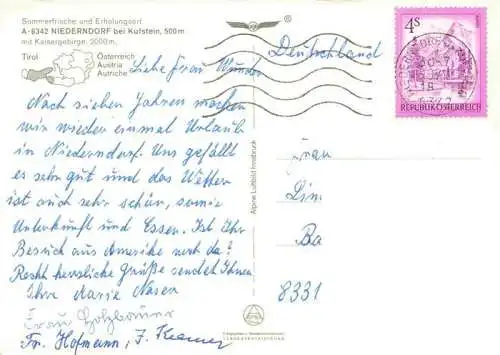 Sommerfrische und Erholungsort
A-6342 NIEDERNDORF bei Kufstein, 500m
mit Kaisergebirge, 2000m,
Tirol
Österreich
Austria
Autriche
Liebe Frau
Nach sieben Jahren machen
wir wieder einmal Urlaub
in Niederndorf. Uns gefällt
es sehr gut und das Wetter
ist auch sehr schön, sowie
Unterkunft und Essen. Ist Ihr
Besuch aus Amerika noch da?
Recht herzliche Grüße sendet Ihnen
Ihre Marie
Frau Holzbauer
Fr. Hofmann, F. Kramer
Alpine Luftbild Innsbruck
Deutschland
4S
REPUBLIK ÖSTERREICH
Frau
Lin
Ba
8331